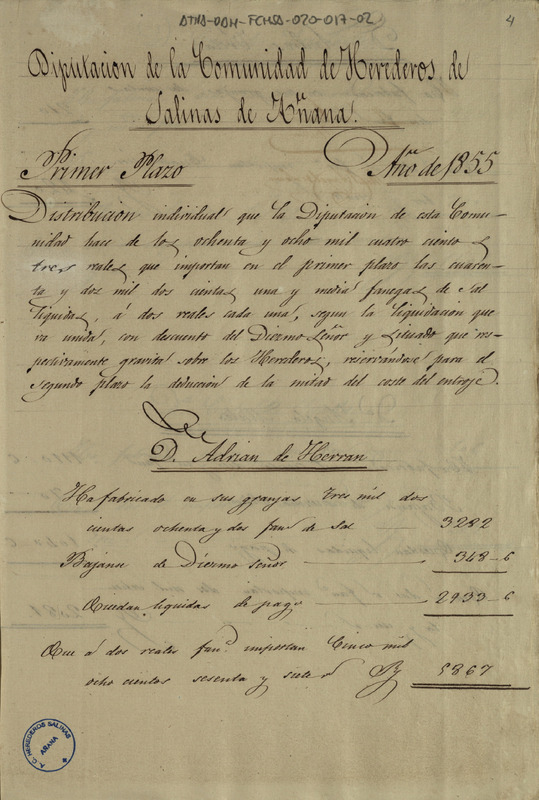 ATHA-DAH-FCHSA-020-017-02
4
Diputacion de la Comunidad de Herederos de
Salinas de Añana.
Primer Plazo
Año de 1855
Distribucion individual que la Diputacion de esta Comu-
nidad hace de los ochenta y ocho mil cuatro cientos
tres reales que importan en el primer plazo las cuaren-
ta y dos mil dos cientas una y media fanegas de sal
liquidas, á dos reales cada una, segun la liquidacion que
va unida, con descuento del Diezmo Señor y Situado que res-
pectivamente gravita sobre los Herederos, reservandose para el
segundo plazo la deducion de la mitad del coste del entroje.
D. Adrian de Herran
Ha fabricado en sus granjas tres mil dos
cientas ochenta y dos fans de sal 3282
Bajanse de Diezmo Señor 348-6
Quedan liquidas de pago 2933-6
Que á dos reales fana. importan Cinco mil
ocho cientos sesenta y siete 5867
A. C. HEREDEROS SALINAS
AÑANA